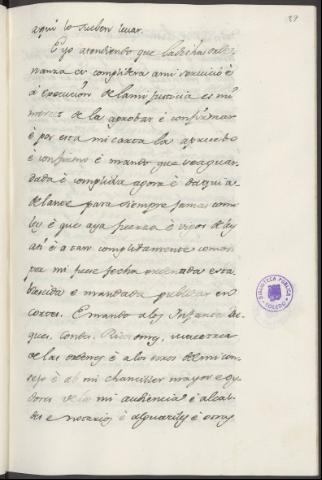 89
aqui lo suelen usar.
E yo atendiendo que la dicha orde-
nanza es complidera a mi servicio é
á execucion de la mi justicia es mi
merced de la aprobar é confirmar
é por esta mi carta la apruebo
é confirmo é mando que sea guar-
dada é complida agora é daqui a-
delante para siempre jamas como
ley é que aya fuerza é vigor de ley
asi é a tan complidamente como si
por mi fuese fecha ordenada esta-
blecida é mandada publicar en
cortes. E mando a los Infantes Du-
ques, Condes, Ricos omes, maestres
de las ordenes é a los otros del mi con-
sejo é al mi chanciller mayor e oy-
dores de la mi audiencia é alcal-
des e notarios é alguaciles é otros
BIBLIOTECA PUBLICA
TOLEDO